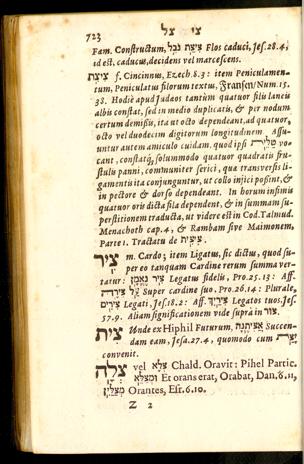 723 צי צל
Fam. Constructum, צִיצַת נֹבֵל Flos caduci, Jes. 28. 4,
id est, caducus, decidens vel marcescens.
צִיצִת f. Cincinnus, Ezech. 8. 3: item Peniculamen-
tum, Peniculatus filorum textus, Fransen / Num. 15.
38. Hodiè apud Judæos tantùm quatuor filis laneis
albis constat, sed in medio duplicatis, & per nodum
certum demissis, ita ut octo dependeant, ad quatuor,
octo vel duodecim digitorum longitudinem. Assu-
untur autem amiculo cuidam, quod ipsi טַלִּית vo-
cant, constatq́; solummodo quatuor quadratis fru-
stulis panni, communiter serici, quæ transversis li-
gamentis ita conjunguntur, ut collo injici possint, &
in pectore & dorso dependeant. In horum infimis
quatuor oris dicta fila dependent, & in summam su-
perstitionem traducta, ut videre est in Cod. Talmud.
Menachoth cap. 4, & Rambam sive Maimonem,
Parte 1. Tractatu de צִיצִית
צִיר m. Cardo; item Ligatus, sic dictus, quod su-
per eo tanquam Cardine rerum summa ver-
tatur: צִיר נֶאֱמָן Legatus fidelis, Pro. 25. 13: Aff.
עַל צִירָהּ Super cardine suo, Pro. 26. 14: Plurale,
צִירִים Legati, Jes. 18. 2: Aff. צִירַיִךְ Legatos tuos, Jes.
57. 9. Aliam significationem vide supra in צור
צית Unde ex Hiphil Futurum, אֲצִיתֶנָּה Succen-
dam eam, Jesa. 27. 4, quomodo cum יָצַת
convenit.
צלה vel צלא Chald. Oravit: Pihel Partic.
וּמְצַלֵּא Et orans erat, Orabat, Dan. 6. 11,
מְצַלַּיִן Orantes, Esr. 6. 10.
Z 2